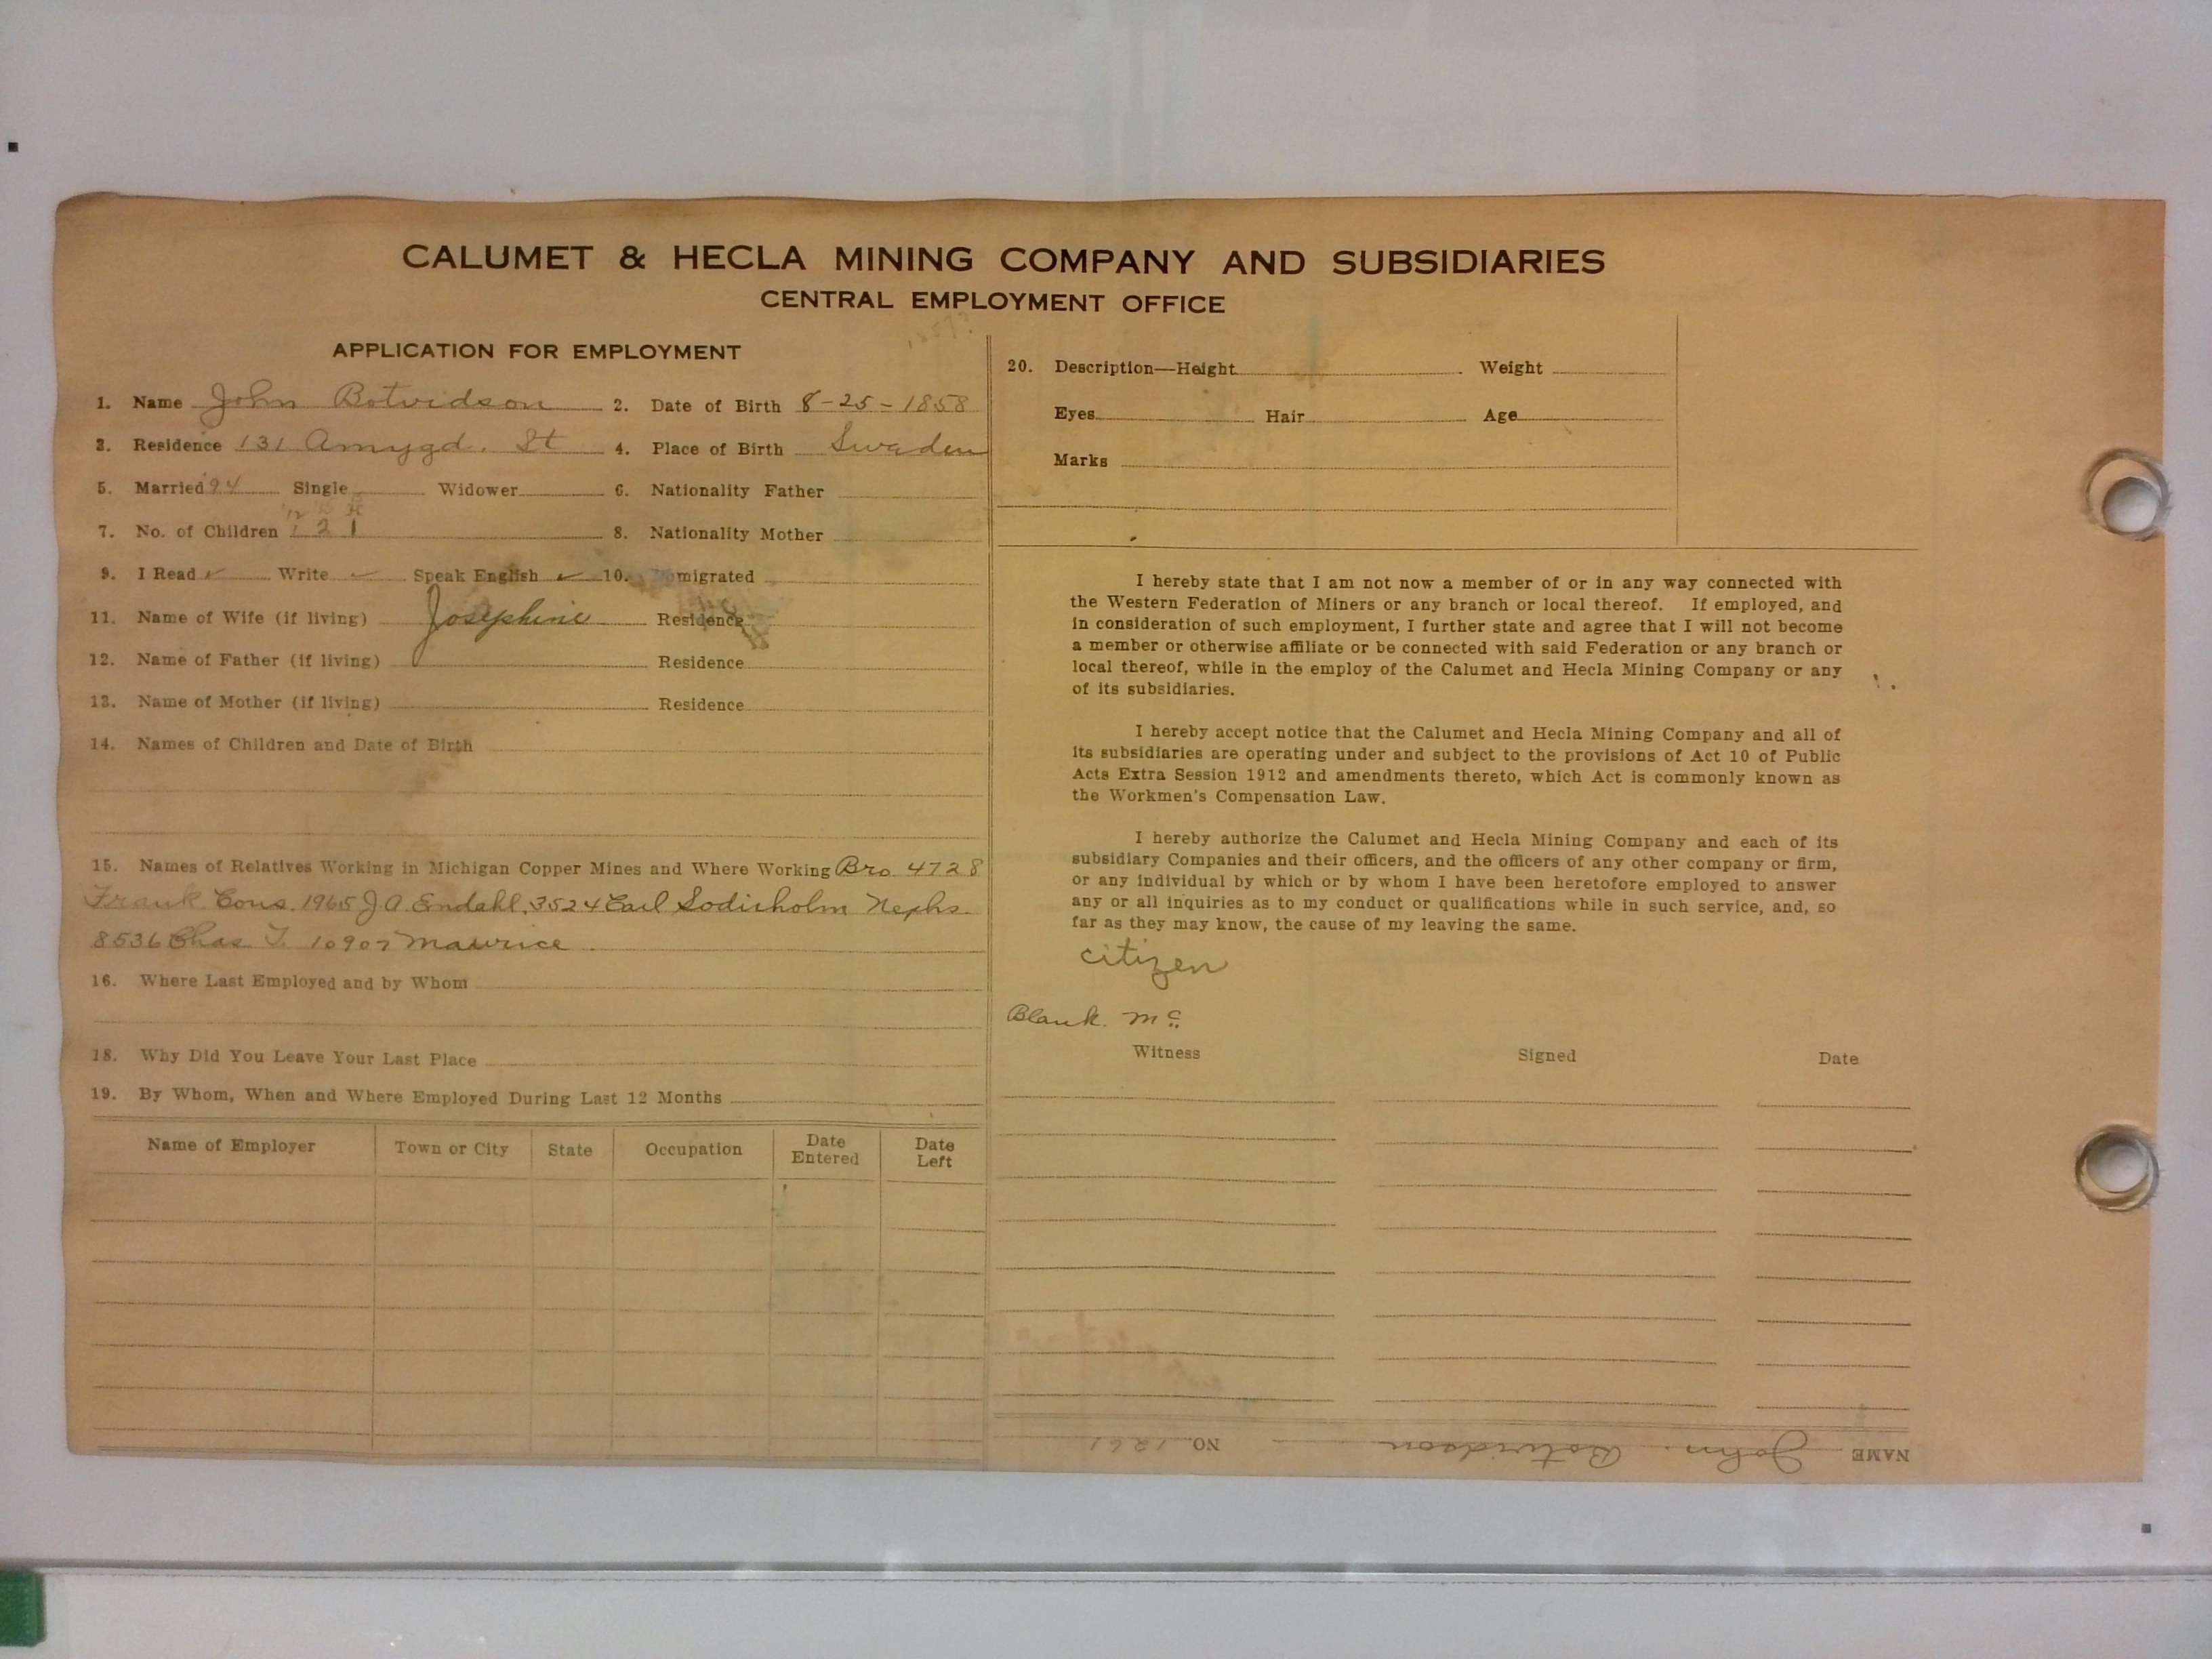 CALUMET & HECLA MINING COMPANY AND SUBSIDIARIES
CENTRAL EMPLOYMENT OFFICE
APPLICATION FOR EMPLOYMENT
1. Name John Botvidson 2. Date of Birth 8-25-1858
3. Residence 131 Amygd. St 4. Place of Birth Sweden
5. Married 94 Single Widower 6. Nationality Father
7. No. of Children 1 2 1 8. Nationality Mother
9. I Read ✓ Write ✓ Speak English ✓ 10. migrated
11. Name of Wife (if living) Josephine Residence
12. Name of Father (if living) Residence
13. Name of Mother (if living) Residence
14. Names of Children and Date of Birth
15. Names of Relatives Working in Michigan Copper Mines and Where Working Bro 4728
Frank Cous. 1965 J.A. Endahl, 3524 Carl Sodirholm Nephs.
8536 Chas T. 10907 Maurice
16. Where Last Employed and by Whom
18. Why Did You Leave Your Last Place
19. By Whom, When and Where Employed During Last 12 Months
Name of Employer Town or City State Occupation Date Entered Date Left
20. Description—Height Weight
Eyes Hair Age
Marks
I hereby state that I am not now a member of or in any way connected with
the Western Federation of Miners or any branch or local thereof. If employed, and
in consideration of such employment, I further state and agree that I will not become
a member or otherwise affiliate or be connected with said Federation or any branch or
local thereof, while in the employ of the Calumet and Hecla Mining Company or any
of its subsidiaries.
I hereby accept notice that the Calumet and Hecla Mining Company and all of
its subsidiaries are operating under and subject to the provisions of Act 10 of Public
Acts Extra Session 1912 and amendments thereto, which Act is commonly known as
the Workmen's Compensation Law.
I hereby authorize the Calumet and Hecla Mining Company and each of its
subsidiary Companies and their officers, and the officers of any other company or firm,
or any individual by which or by whom I have been heretofore employed to answer
any or all inquiries as to my conduct or qualifications while in such service, and, so
far as they may know, the cause of my leaving the same.
citizen
Blank. Mc
Witness Signed Date
NAME John Botvidson NO. 1261